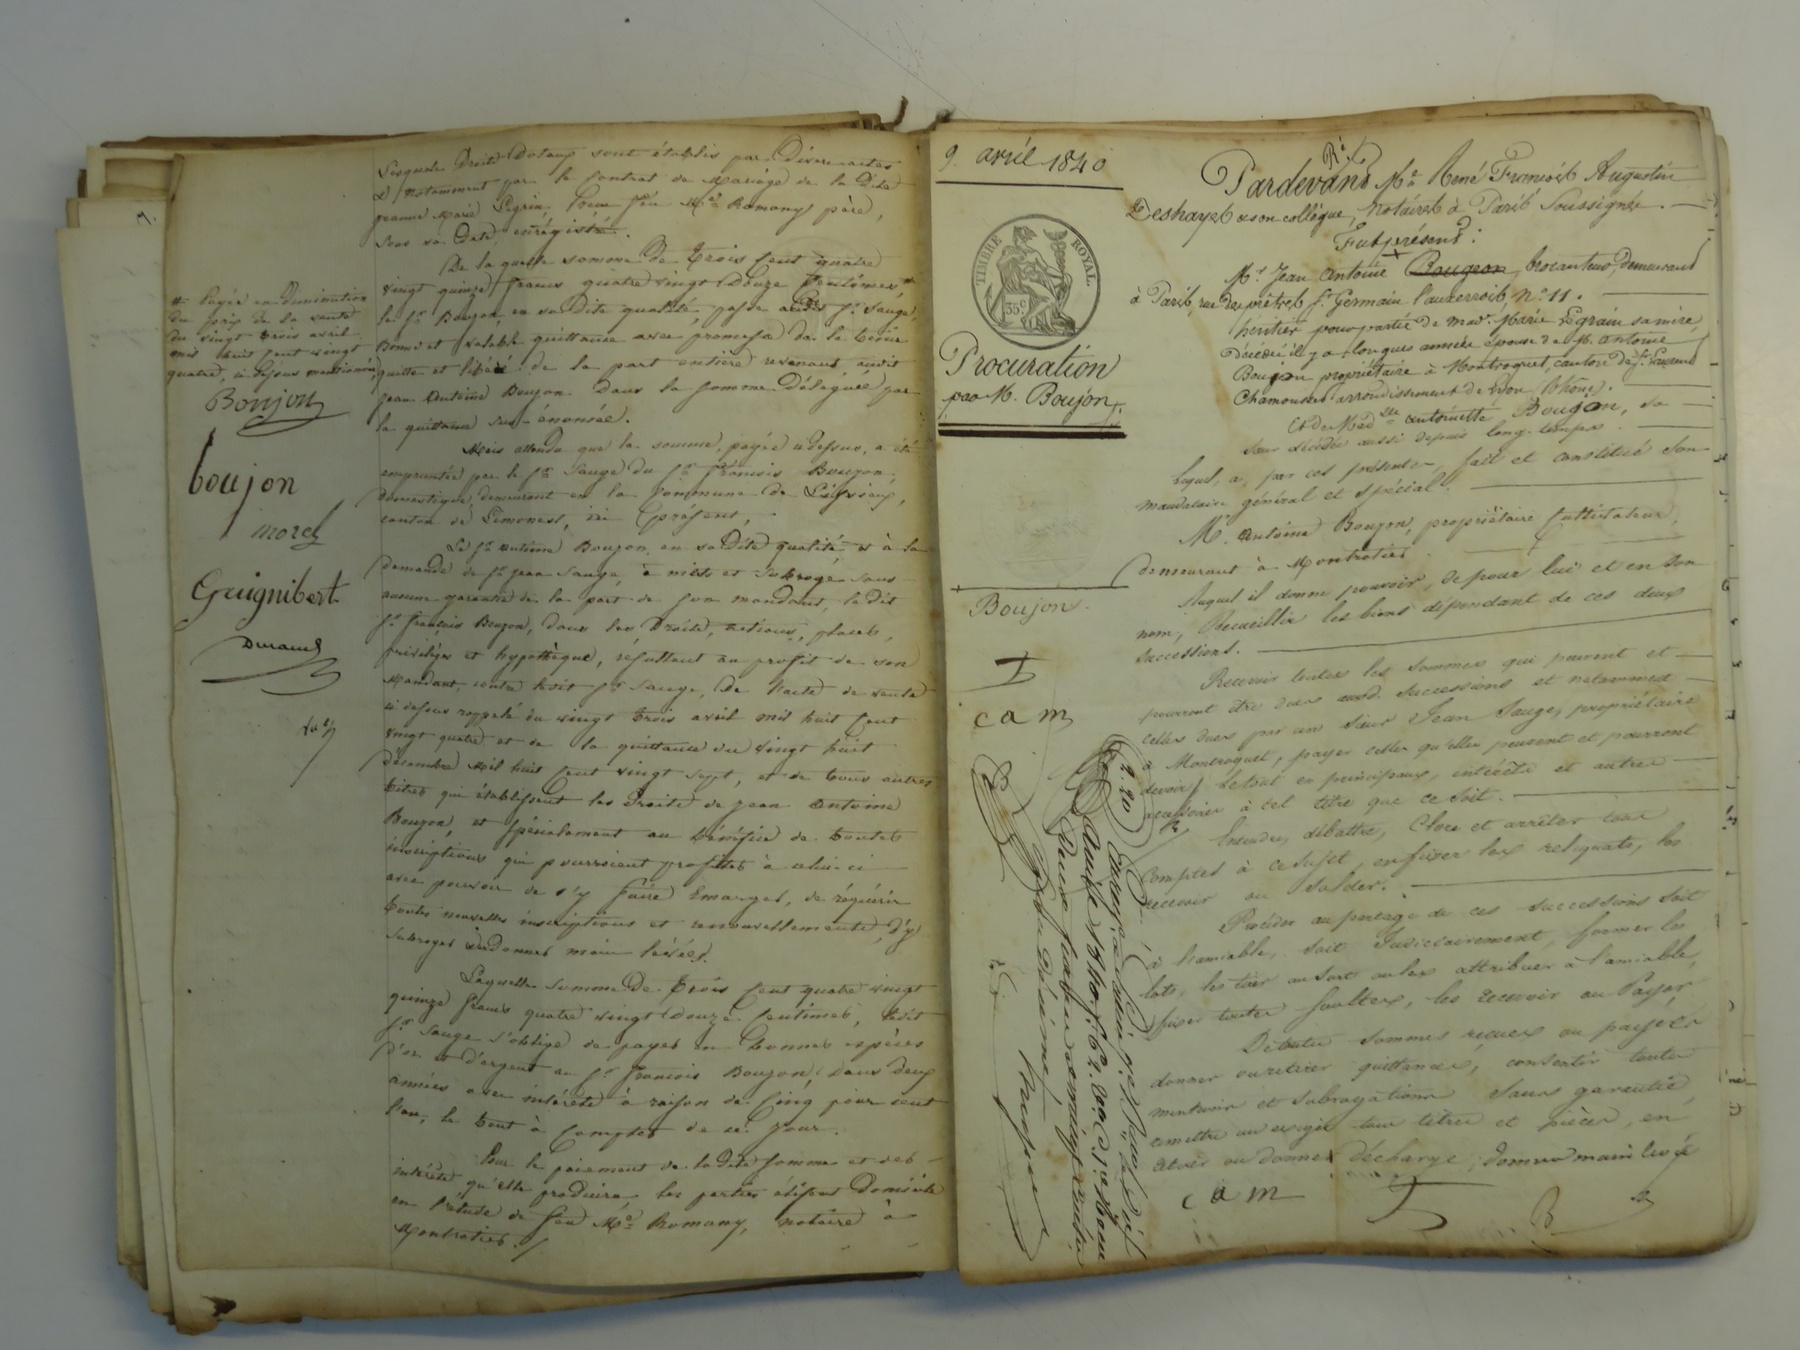 Lesquels Droits Dotaux sont établis par Divers actes
& Notamment par le Contrat de Mariage de la Dite
jeanne Marie Legrin, Devant feu Me Romany père,
sous sa Date, enrégistré.
De la quelle somme de Trois Cent quatre
vingt quinze francs quatre vingt Douze Centimes, #
le Sr Boujon, en sa Dite qualité, passe audit Sr Sauge,
Bonne et valable quittance avec promesse de le tenir
quitte et libéré de la part entière revenant audit
jean Antoine Boujon Dans la somme Déléguée par
la quittance sus-énoncée.
Mais attendu que la somme, payée ci dessus, a été
empruntée par le Sr Sauge du Sr françois Boujon,
Domestique, demeurant en la Commune de
canton de Limonest, ici présent,
Le Sr Antoine Boujon, en sa Dite qualité et à la
demande de Sr jean Sauge, à mis et Subrogé sans
aucune garantie de la part de son mandant, le dit
Sr françois Boujon, dans les Droits, actions, places,
privilèges et hypothèque, résultant au profit de son
Mandant, contre ledit Sr Sauge, De l'acte de vente
ci dessus rappelé du vingt trois avril mil huit Cent
vingt quatre et de la quittance du vingt huit
décembre Mil huit Cent vingt sept, et de tous autres
titres qui établissent les Droits de jean Antoine
Boujon, et spécialement au bénéfice de toutes
inscriptions qui pourroient profiter à celui-ci
avec pouvoir de s'y faire Emarger, de réquérir
toutes nouvelles inscriptions et renouvellements, d'y
subroger ou donner main levées.
Laquelle somme De Trois Cent quatre vingt
quinze francs quatre vingt Douze Centimes, ledit
Sr Sauge s'oblige de payer en bonnes espèces
d'or et d'argent au Sr françois Boujon, Dans Deux
années avec intérêts à raison de Cinq pour cent
l'an, le tout à Compter de ce jour.
Pour le paiement de la Dite somme et des
intérêts qu'elle produira les parties élisent Domicile
en l'étude de feu Me Romany, notaire à
Montrotier.
# Payée en Diminution
du prix de la vente
du vingt trois avril
mil huit cent vingt
quatre, ci dessus mentionné
Boujon
boujon
morel
Guignibert
Durand
9 avril 1840
TIMBRE ROYAL
35c
Procuration
par M. Boujon
Boujon
cam
Pardevant Me René François Augustin
Deshayes & son collègue, Notaires à Paris Soussignés.
Fut présent:
Mr Jean Antoine Bougeon, brocanteur, demeurant
à Paris, rue des prêtres St Germain l'auxerrois No 11.
héritier pour partie de mad. Marie Egrain sa mère,
Décédée il y a longues années Epouse de M. Antoine
Boujon propriétaire à Montroquet, canton de St Laurent
Chamousset arrondissement de Lyon (Rhône).
Et de Mad.lle antoinette Boujon, sa
soeur décédée aussi depuis long-temps.
Lequel, a, par ces présentes, fait et constitué son
mandataire général et spécial.
Mr. Antoine Boujon, propriétaire Cultivateur,
demeurant à Montrotier
Auquel il donne pouvoir, de pour lui et en son
nom, Recueillir les biens dépendant de ces deux
successions.
Recevoir toutes les sommes qui peuvent et
pourront être dues auxd. successions et notamment
celles dues par un sieur Jean Sauge, propriétaire
à Montroquet, payer celles qu'elles peuvent et pourront
devoir, le tout en principaux, intérêts et autres
accessoires à tel titre que ce soit.
Entendre, débattre, Clore et arrêter tous
Comptes à ce sujet, en fixer les reliquats, les
recevoir ou solder.
Procéder au partage de ces successions soit
à l'amiable, soit Judiciairement, former les
lots, les tirer au sort ou les attribuer à l'amiable,
fixer toutes soultes, les recevoir ou Payer
De toutes sommes reçues ou payées
donner ou retirer quittances, consentir toutes
mentions et subrogations sans garantie,
remettre ou exiger tous titres et pièces, en
retirer ou donner décharge; donner main levée
cam
220
avril 1840